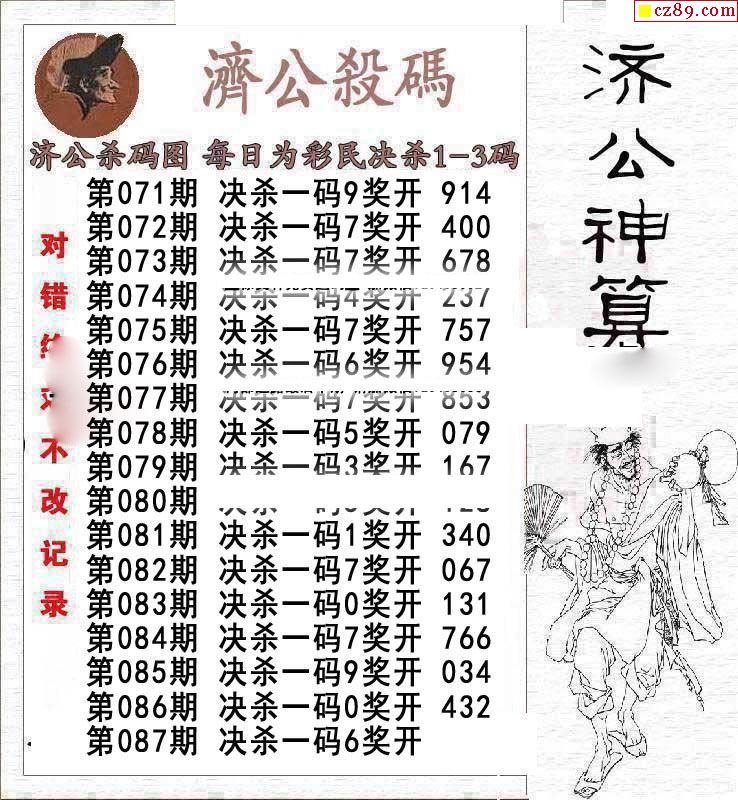 cz89.com
濟公殺碼
济公杀码图 每日为彩民决杀1-3码
第071期 决杀一码9奖开 914
第072期 决杀一码7奖开 400
第073期 决杀一码7奖开 678
第074期 决杀一码4奖开 237
第075期 决杀一码7奖开 757
第076期 决杀一码6奖开 954
第077期 决杀一码7奖开 853
第078期 决杀一码5奖开 079
第079期 决杀一码3奖开 167
第080期
第081期 决杀一码1奖开 340
第082期 决杀一码7奖开 067
第083期 决杀一码0奖开 131
第084期 决杀一码7奖开 766
第085期 决杀一码9奖开 034
第086期 决杀一码0奖开 432
第087期 决杀一码6奖开
对错
不改记录
济公神算